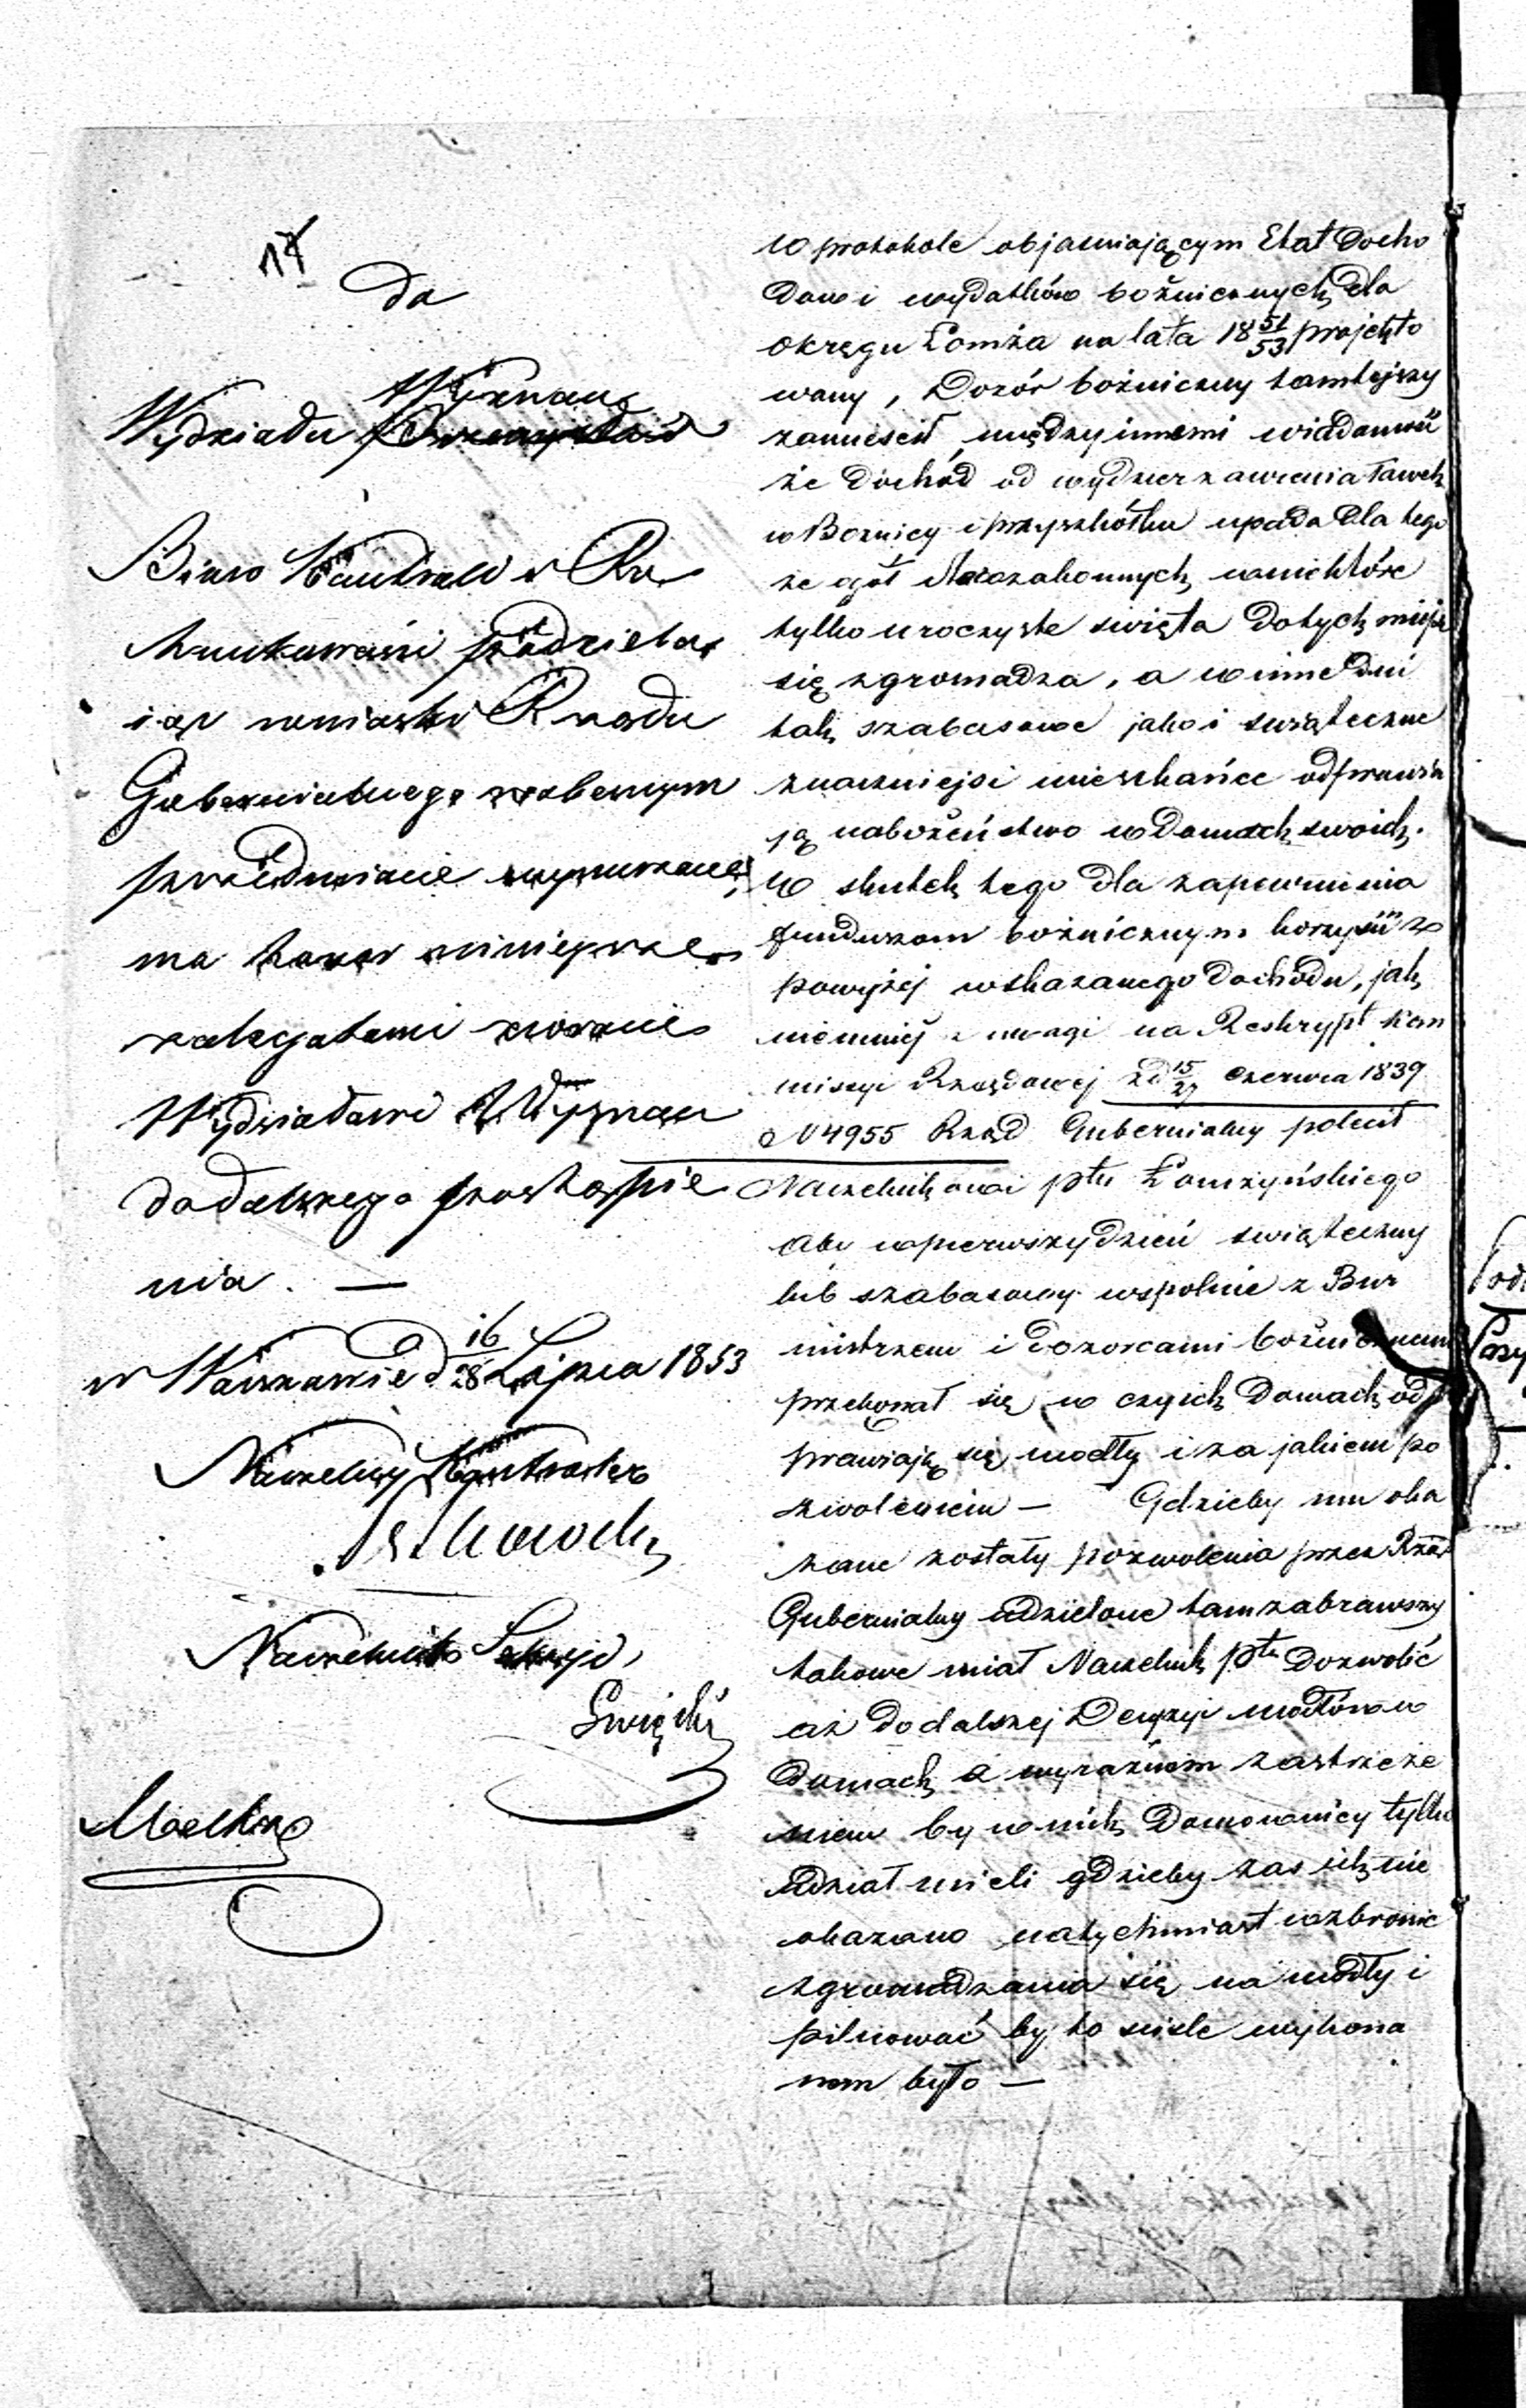 17
do
Wyznań
Wydziału
Biuro Kontroli w
rachunkowości podziela
iąc wnioski Rządu
Gubernialnego w obecnym
przedmiocie wynurzone,
ma honor niniejsze
z alegatami zwrócić
Wydziałowi Wyznań
do dalszego postąpie
nia. —
w Warszawie d 16/28 Lipca 1853
Naczelny Kontroler
Naczelnik Sekcyi,
Święcki
W protokole objasniającym Etat docho
dów i wydatków bożnicznych dla
okręgu Łomża na lata 18 51/53 projekto
wany, Dozór bożniczny tamtejszy
zamieścił między innemi wiadomość
że dochód od wydzierzawienia ławek
w Bożnicy i przyszkółku upada dla tego
że ogół Starozakonnych w niektóre
tylko uroczyste święta do tych miejsc
się zgromadza, a w inne dni
tak szabasowe jako i świąteczne
znaczniejsi mieszkańce odprawia
ją nabożeństwo w domach swoich.
W skutek tego dla zapewnienia
funduszom bożnicznym korzyści z
powyżej wskazanego dochodu, jak
niemniej z uwagi na Reskrypt Kom
missyi Rządowej z d 15/27 czerwca 1839
N 4955 Rząd Gubernialny polecił
Naczelnikowi ptu Łomżyńskiego
aby w pierwszy dzień świąteczny
lub szabasowy wspolnie z Bur
mistrzem i dozorcami bożnicznemi
przekonał się w czyich domach od
prawiają się modły i za jakiem po
zwoleniem — Gdzieby mu oka
zane zostały pozwolenia przez Rząd
Gubernialny udzielone tam zabrawszy
takowe miał Naczelnik ptu dozwolić
aż do dalszej Decyzyi modłów w
domach z wyraźnem zastrzeże
niem by w nich domownicy tylko
udział mieli gdzieby zaś ich nie
okazano natychmiast wzbronić
zgromadzania się na modły i
pilnować by to ściśle wykona
nem było —